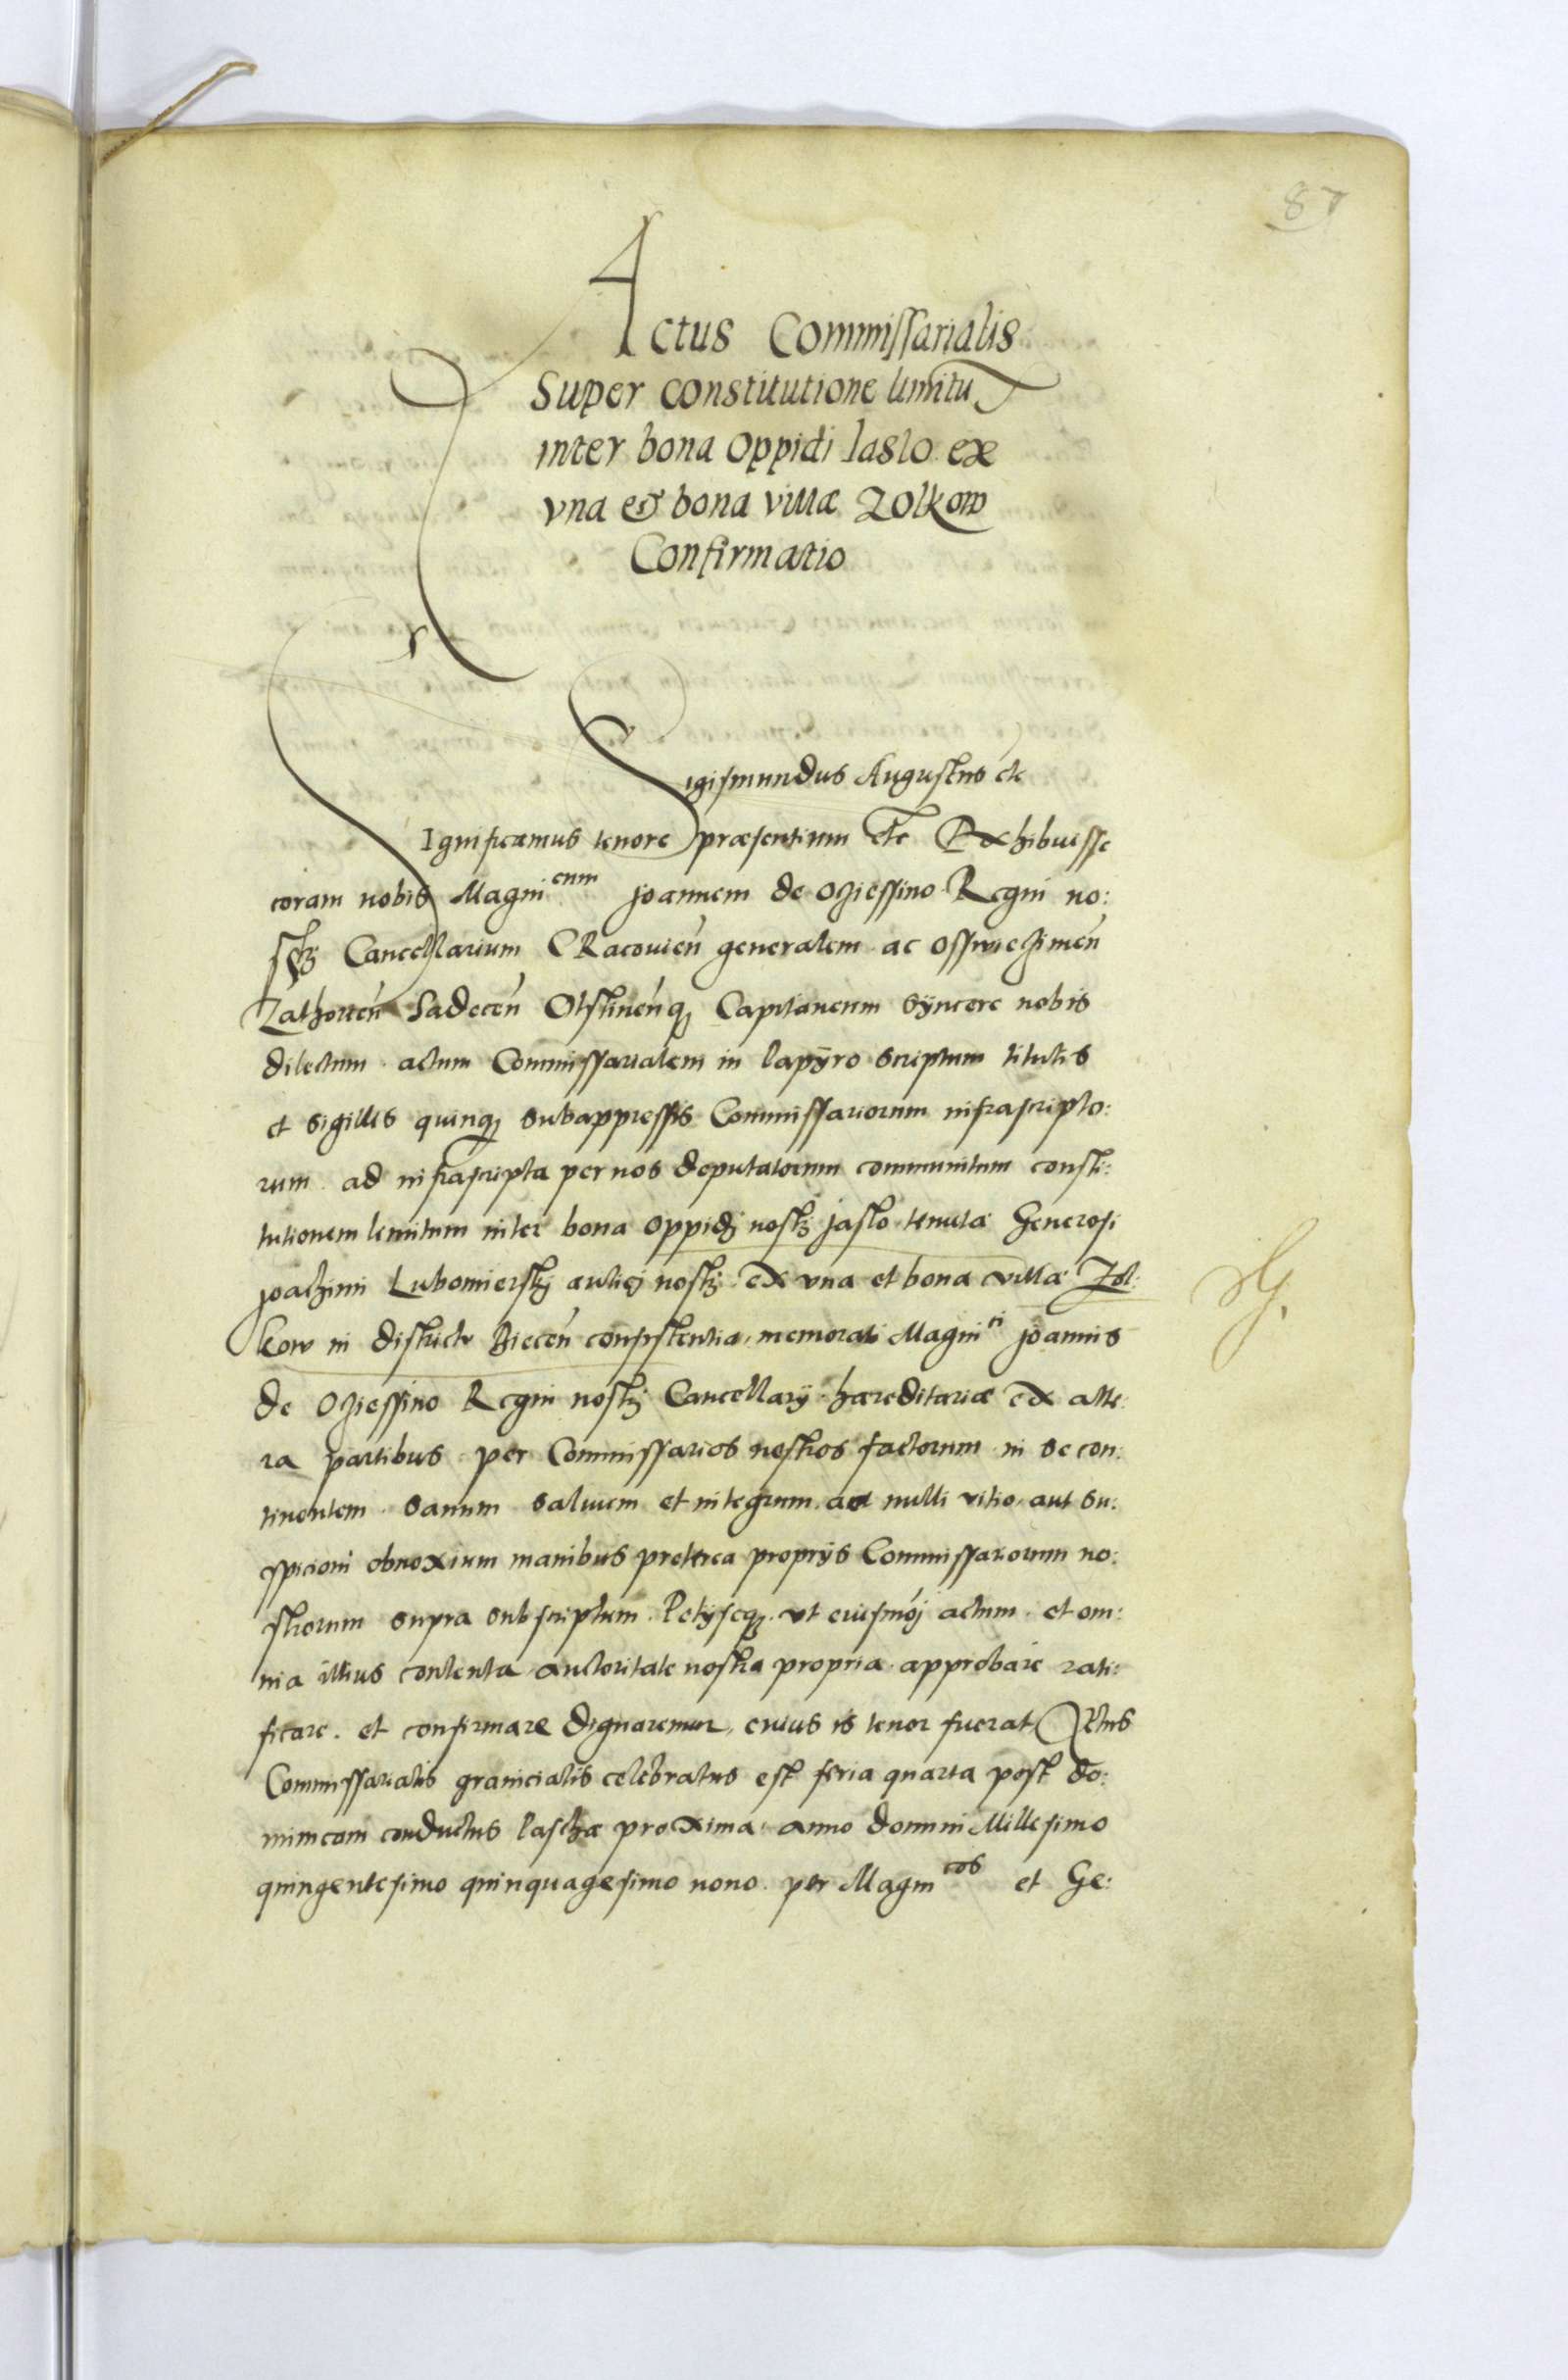 87
Actus Commissarialis
Super constitutione limitu
inter bona Oppidi Jaslo ex
vna et bona villæ Zolkow
Confirmatio
Sigismundus Augustus etc
Significamus tenore præsentium etc Exhibuisse
coram nobis Magni^cum Joannem de Oziessino Regni no:
strj Cancellarium CRacouien̄ generalem ac Osswieczimen̄
Zathorien̄ Sadecen̄ Olstinen̄q3 Capitaneum Syncere nobis
dilectum actum Commissarialem in Papÿro scriptum titulis
et sigillis quinq3 subappressis Commissariorum infrascripto:
rum ad infrascripta per nos deputatorum communitum consti:
tutionem limitum inter bona oppidj nostrj Jaslo tenutæ Generosi
Joachimi Lubomierskj aulicj nostrj ex vna et bona villæ Zol:
kow in districtu Biecen̄ consistentia, memorati Magni^ci Joannis
de Oziessino Regni nostrj Cancellarÿ hæreditariæ ex alte:
ra partibus per Commissarios nostros factorum in se con:
tinentem sanum saluum et integrum ac nulli vitio aut su:
spicioni obnoxium manibus preterea proprÿs Commissariorum no:
strorum supra subscriptum. Petÿseq3 vt eiusmoj actum et om:
nia illius contenta auctoritate nostra propria approbare rati:
ficare. et confirmare dignaremur, cuius is tenor fuerat Actus
Commissarialis granicialis celebratus est feria quarta post do:
minicam conductus Paschæ proxima anno Domini Millesimo
quingentesimo quinquagesimo nono per Magni^cos et Ge: